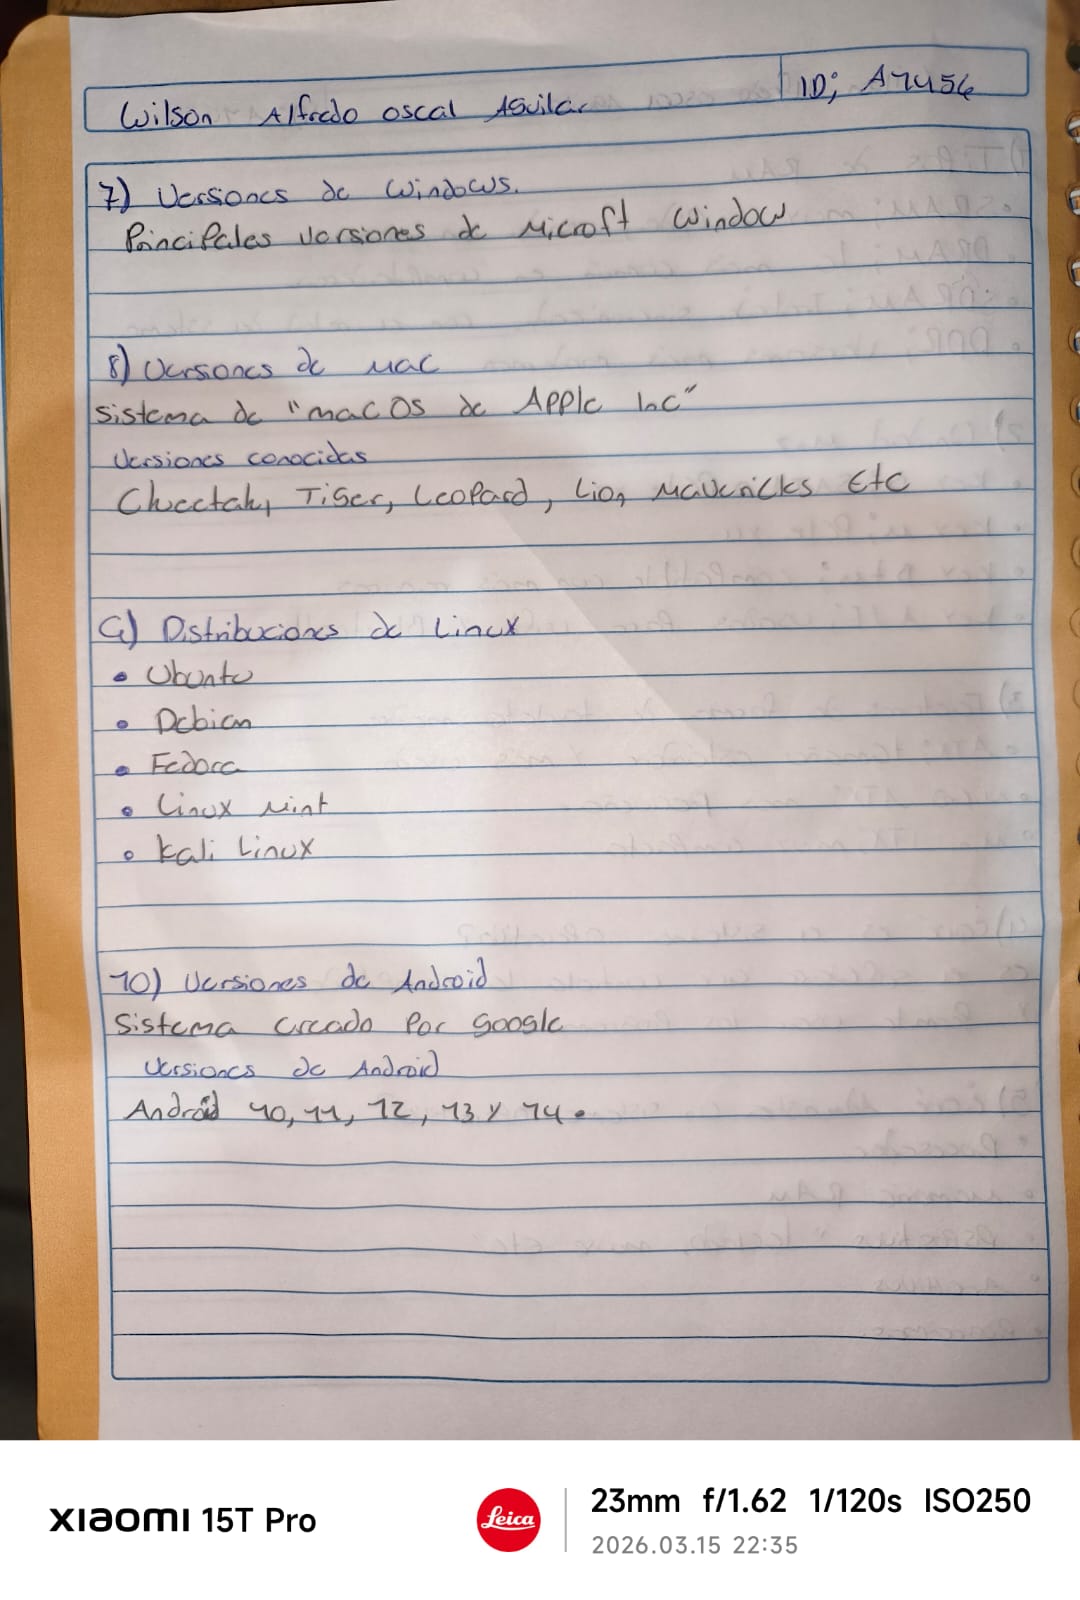 Wilson Alfredo oscal Aguilar
ID; A7456
7) Versiones de Windows.
Principales versiones de Microft Window
8) Versiones de Mac
Sistema de "macOS de Apple Inc"
Versiones conocidas
Cheetah, Tiger, Leopard, Lion, Mavericks Etc
9) Distribuciones de Linux
• Ubuntu
• Debian
• Fedora
• Linux Mint
• Kali Linux
10) Versiones de Android
Sistema creado Por Google
Versiones de Android
Android 10, 11, 12, 13 y 14.
XIAOMI 15T Pro
Leica
23mm f/1.62 1/120s ISO250
2026.03.15 22:35